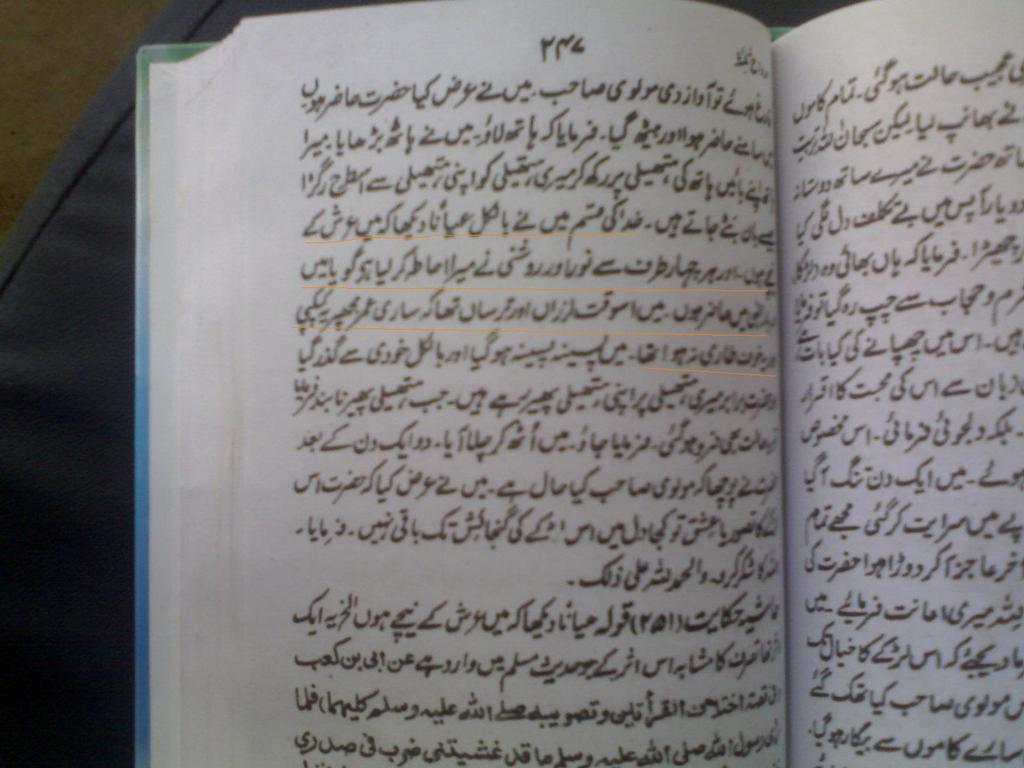 ۲۴۷
ہوئے تو آواز دی مولوی صاحب۔ میں نے عرض کیا حضرت حاضر ہوں
سامنے حاضر ہوا اور بیٹھ گیا۔ فرمایا کہ ہاتھ لاؤ۔ میں نے ہاتھ بڑھایا۔ میرا
اپنے بائیں ہاتھ کی ہتھیلی پر رکھ کر میری ہتھیلی کو اپنی ہتھیلی سے اسطرح رگڑا
بان بٹے جاتے ہیں۔ خدا کی قسم میں نے بالکل عیاناً دیکھا کہ میں عرش کے
ہوں۔ اور ہر چہار طرف سے نور اور روشنی نے میرا احاطہ کر لیا ہے گویا میں
میں حاضر ہوں۔ میں اسوقت لرزاں اور ترساں تھا کہ ساری عمر مجھ پر یہ کپکپی
خوف طاری نہ ہوا تھا۔ میں پسینہ پسینہ ہو گیا اور بالکل خودی سے گذر گیا
حضرت برابر میری ہتھیلی پر اپنی ہتھیلی پھیر رہے ہیں۔ جب ہتھیلی پھیرنا بند فرمایا
حالت بھی فرو ہو گئی۔ فرمایا جاؤ۔ میں اُٹھ کر چلا آیا۔ دو ایک دن کے بعد
نے پوچھا کہ مولوی صاحب کیا حال ہے۔ میں نے عرض کیا کہ حضرت اس
کا تصور یا عشق تو کجا دل میں اس لڑکے کی گنجائش تک باقی نہیں۔ فرمایا۔
اللہ کا شکر کرو۔ والحمد للہ علی ذلک۔
حاشیہ حکایت (۲۵۱) قولہ عیاناً دیکھا کہ میں عرش کے نیچے ہوں الخ یہ ایک
تصرف کا مشابہ اس اثر کے جو حدیث مسلم میں وارد ہے عن ابی بن کعب
قصة اختلاف القرأتین و تصویبه صلے الله علیه وسلم کلیهما) فلما
رسول الله صلی الله علیه وسلم ما قد غشیتنی ضرب فی صدری
عجیب حالت ہو گئی۔ تمام کاموں
نے بھانپ لیا لیکن سبحان اللہ تربیت
حضرت نے میرے ساتھ دوستانہ
دو یار آپس میں بے تکلف دل لگی کیا
چھیڑا۔ فرمایا کہ ہاں بھائی وہ
و حجاب سے چپ رہ گیا تو فرمایا
ہیں۔ اس میں چھپانے کی کیا بات ہے
زبان سے اس کی محبت کا اقرار
بلکہ دلجوئی فرمائی۔ اس مخصوص
ہوئے۔ میں ایک دن تنگ آگیا
میں سرایت کر گئی مجھے تمام
عاجز آکر دوڑا ہوا حضرت کی
للہ میری اعانت فرمائیے۔ میں
دیجئے کہ اس لڑکے کا خیال تک
مولوی صاحب کیا تھک گئے
سارے کاموں سے بیکار ہو گیا۔